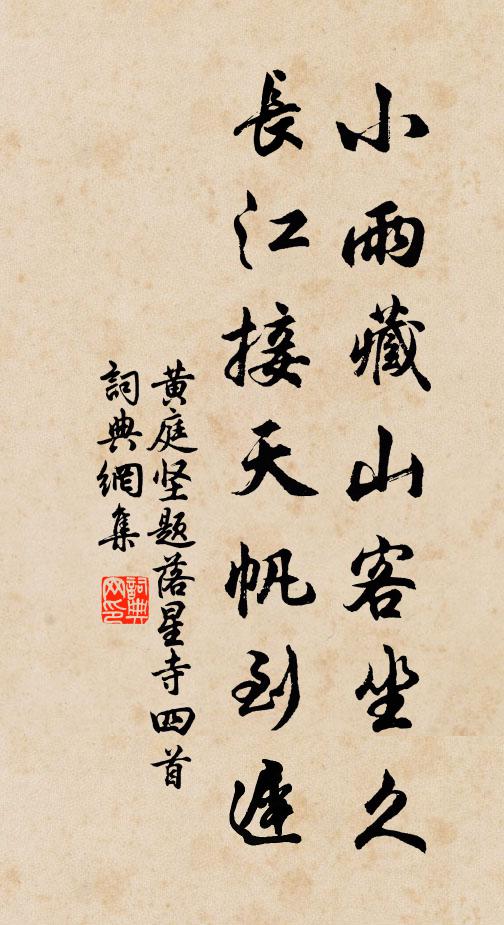 小雨藏山客坐久
長江接天帆到遲
黄庭坚题落星寺四首
詞典網集
詞典網印